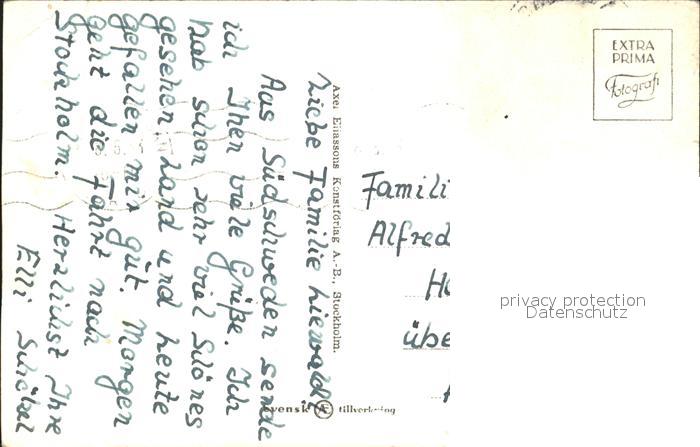 Liebe Familie Liewald!
Aus Südschweden sende
ich Ihen viele Grüße. Ich
hab schon sehr viel Schönes
gesehen Land und heute
gefallen mir gut. Morgen
geht die Fahrt nach
Stockholm. Herzlichst Ihre
Elli Schöbel
Axel Eliassons Konstförlag A.-B., Stockholm.
Svensk tillverkning
EXTRA
PRIMA
Fotografi
Famili
Alfred
übe
privacy protection
Datenschutz